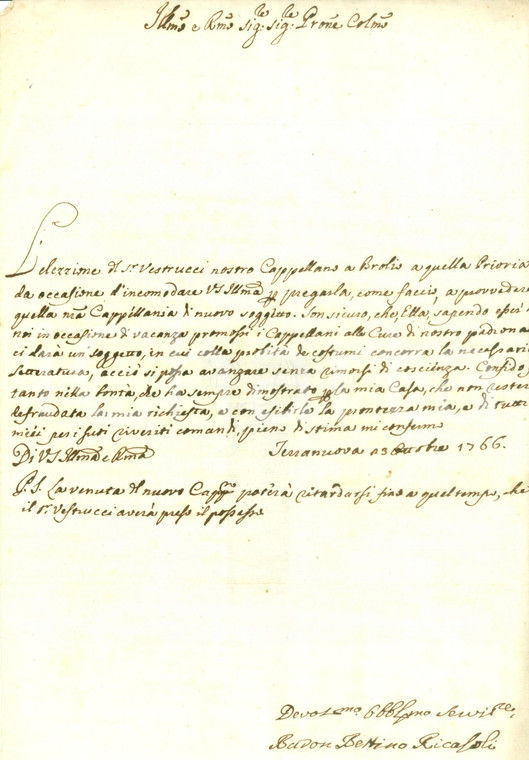 Illmo e Rmo Sig:re Sig:re Prone Colmo
L'elezzione del Sr Vestrucci nostro Cappellano a Brolio a quella Prioria
da occasione d'incomodare VS Illma pregarla, come faccio, a provvedere
quella mia Cappellania di nuovo soggetto. Son sicuro, che Ella, sapendo esser
noi in occasione di vacanza promossi i Cappellani alle Cure di nostro padrona
ci darà un soggetto, in cui colla probità de costumi concorra la necessaria
letteratura, acciò si possa avanzare senza rimorsi di coscienza. Confido
tanto nella bontà, che ha sempre dimostrato p la mia Casa, che non rester
defraudata la mia richiesta, e con esibirle la prontezza mia, e di tutti
miei per i suoi riveriti comandi, pieno di stima mi confermo
Di VS Illma e Rma Terranuova 3 Ottobre 1766.
P.S. La venuta del nuovo Capp potrà ritardarsi fino a quel tempo, che
il Sr Vestrucci averà preso il possesso
Devotmo Obblmo Servitre
Baron Bettino Ricasoli